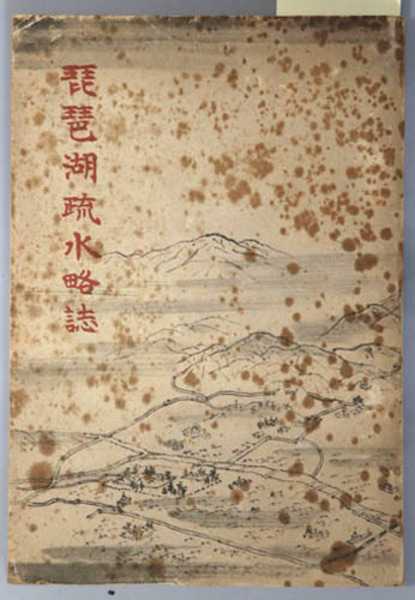 琵琶湖疏水略誌